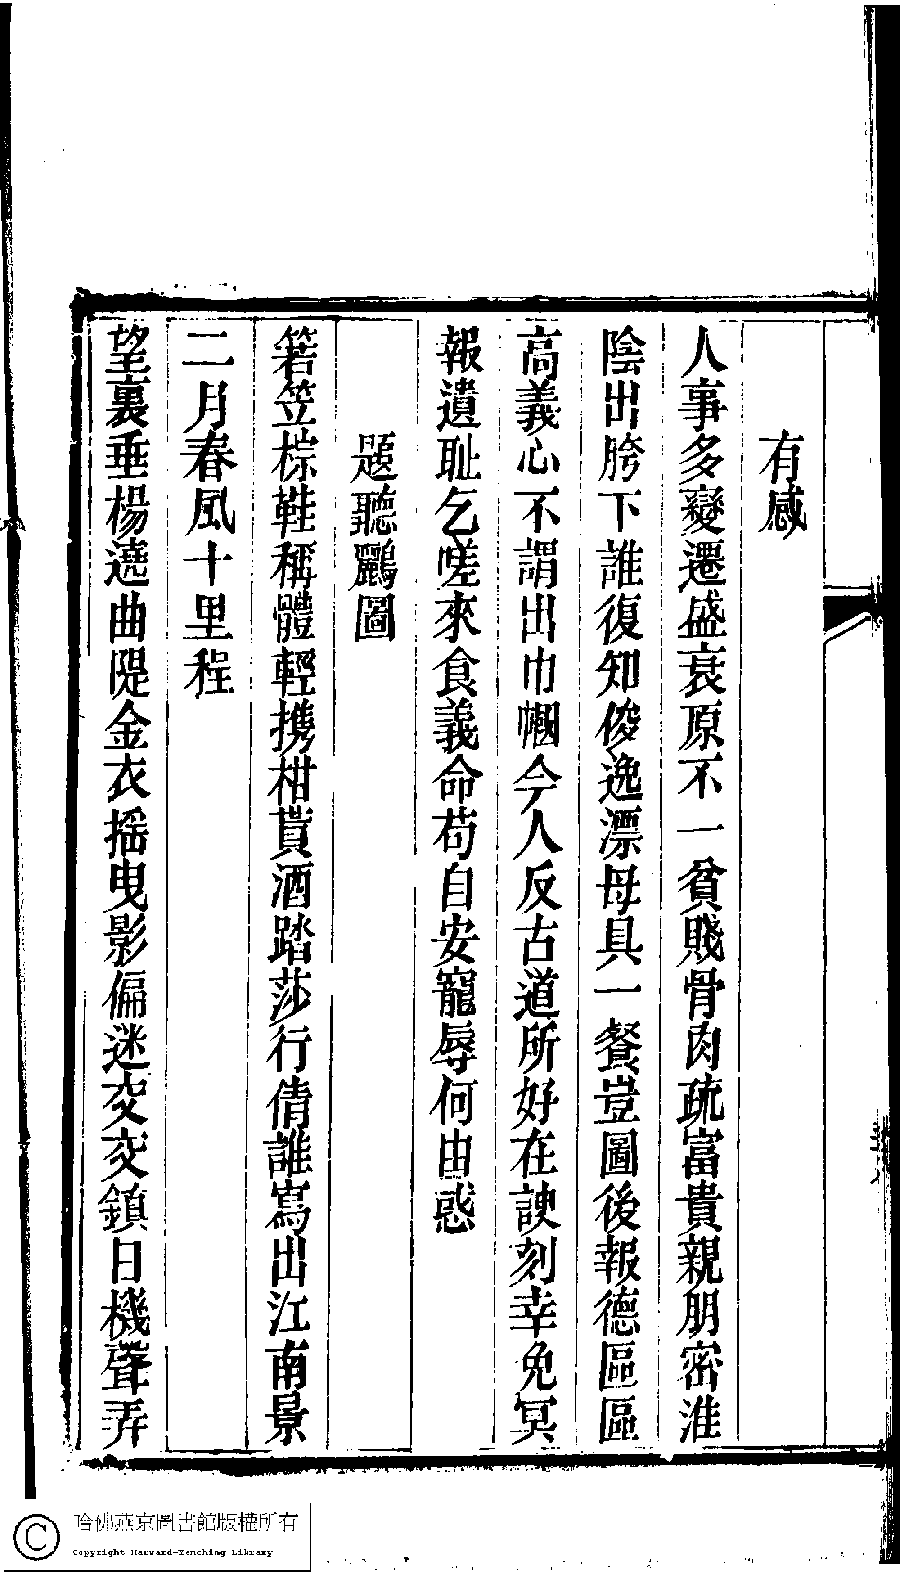 有感
人事多變遷盛衰原不一貧賤骨肉疏富貴親朋密淮
陰出胯下誰復知俊逸漂母具一餐豈圖後報德區區
高義心不謂出巾幗今人反古道所好在諛刻幸免冥
報遺耻乞嗟來食義命苟自安寵辱何由惑
題聽鸝圖
箬笠棕鞋稱體輕携柑貰酒踏莎行倩誰寫出江南景
二月春風十里程
望裏垂楊遶曲隄金衣揺曳影偏迷交交鎮日機聲弄
哈佛燕京圖書館版權所有
Copyright Harvard-Yenching Library